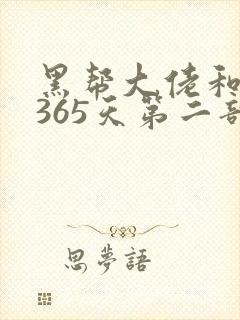 黑帮大佬和
365天第二部
思夢語